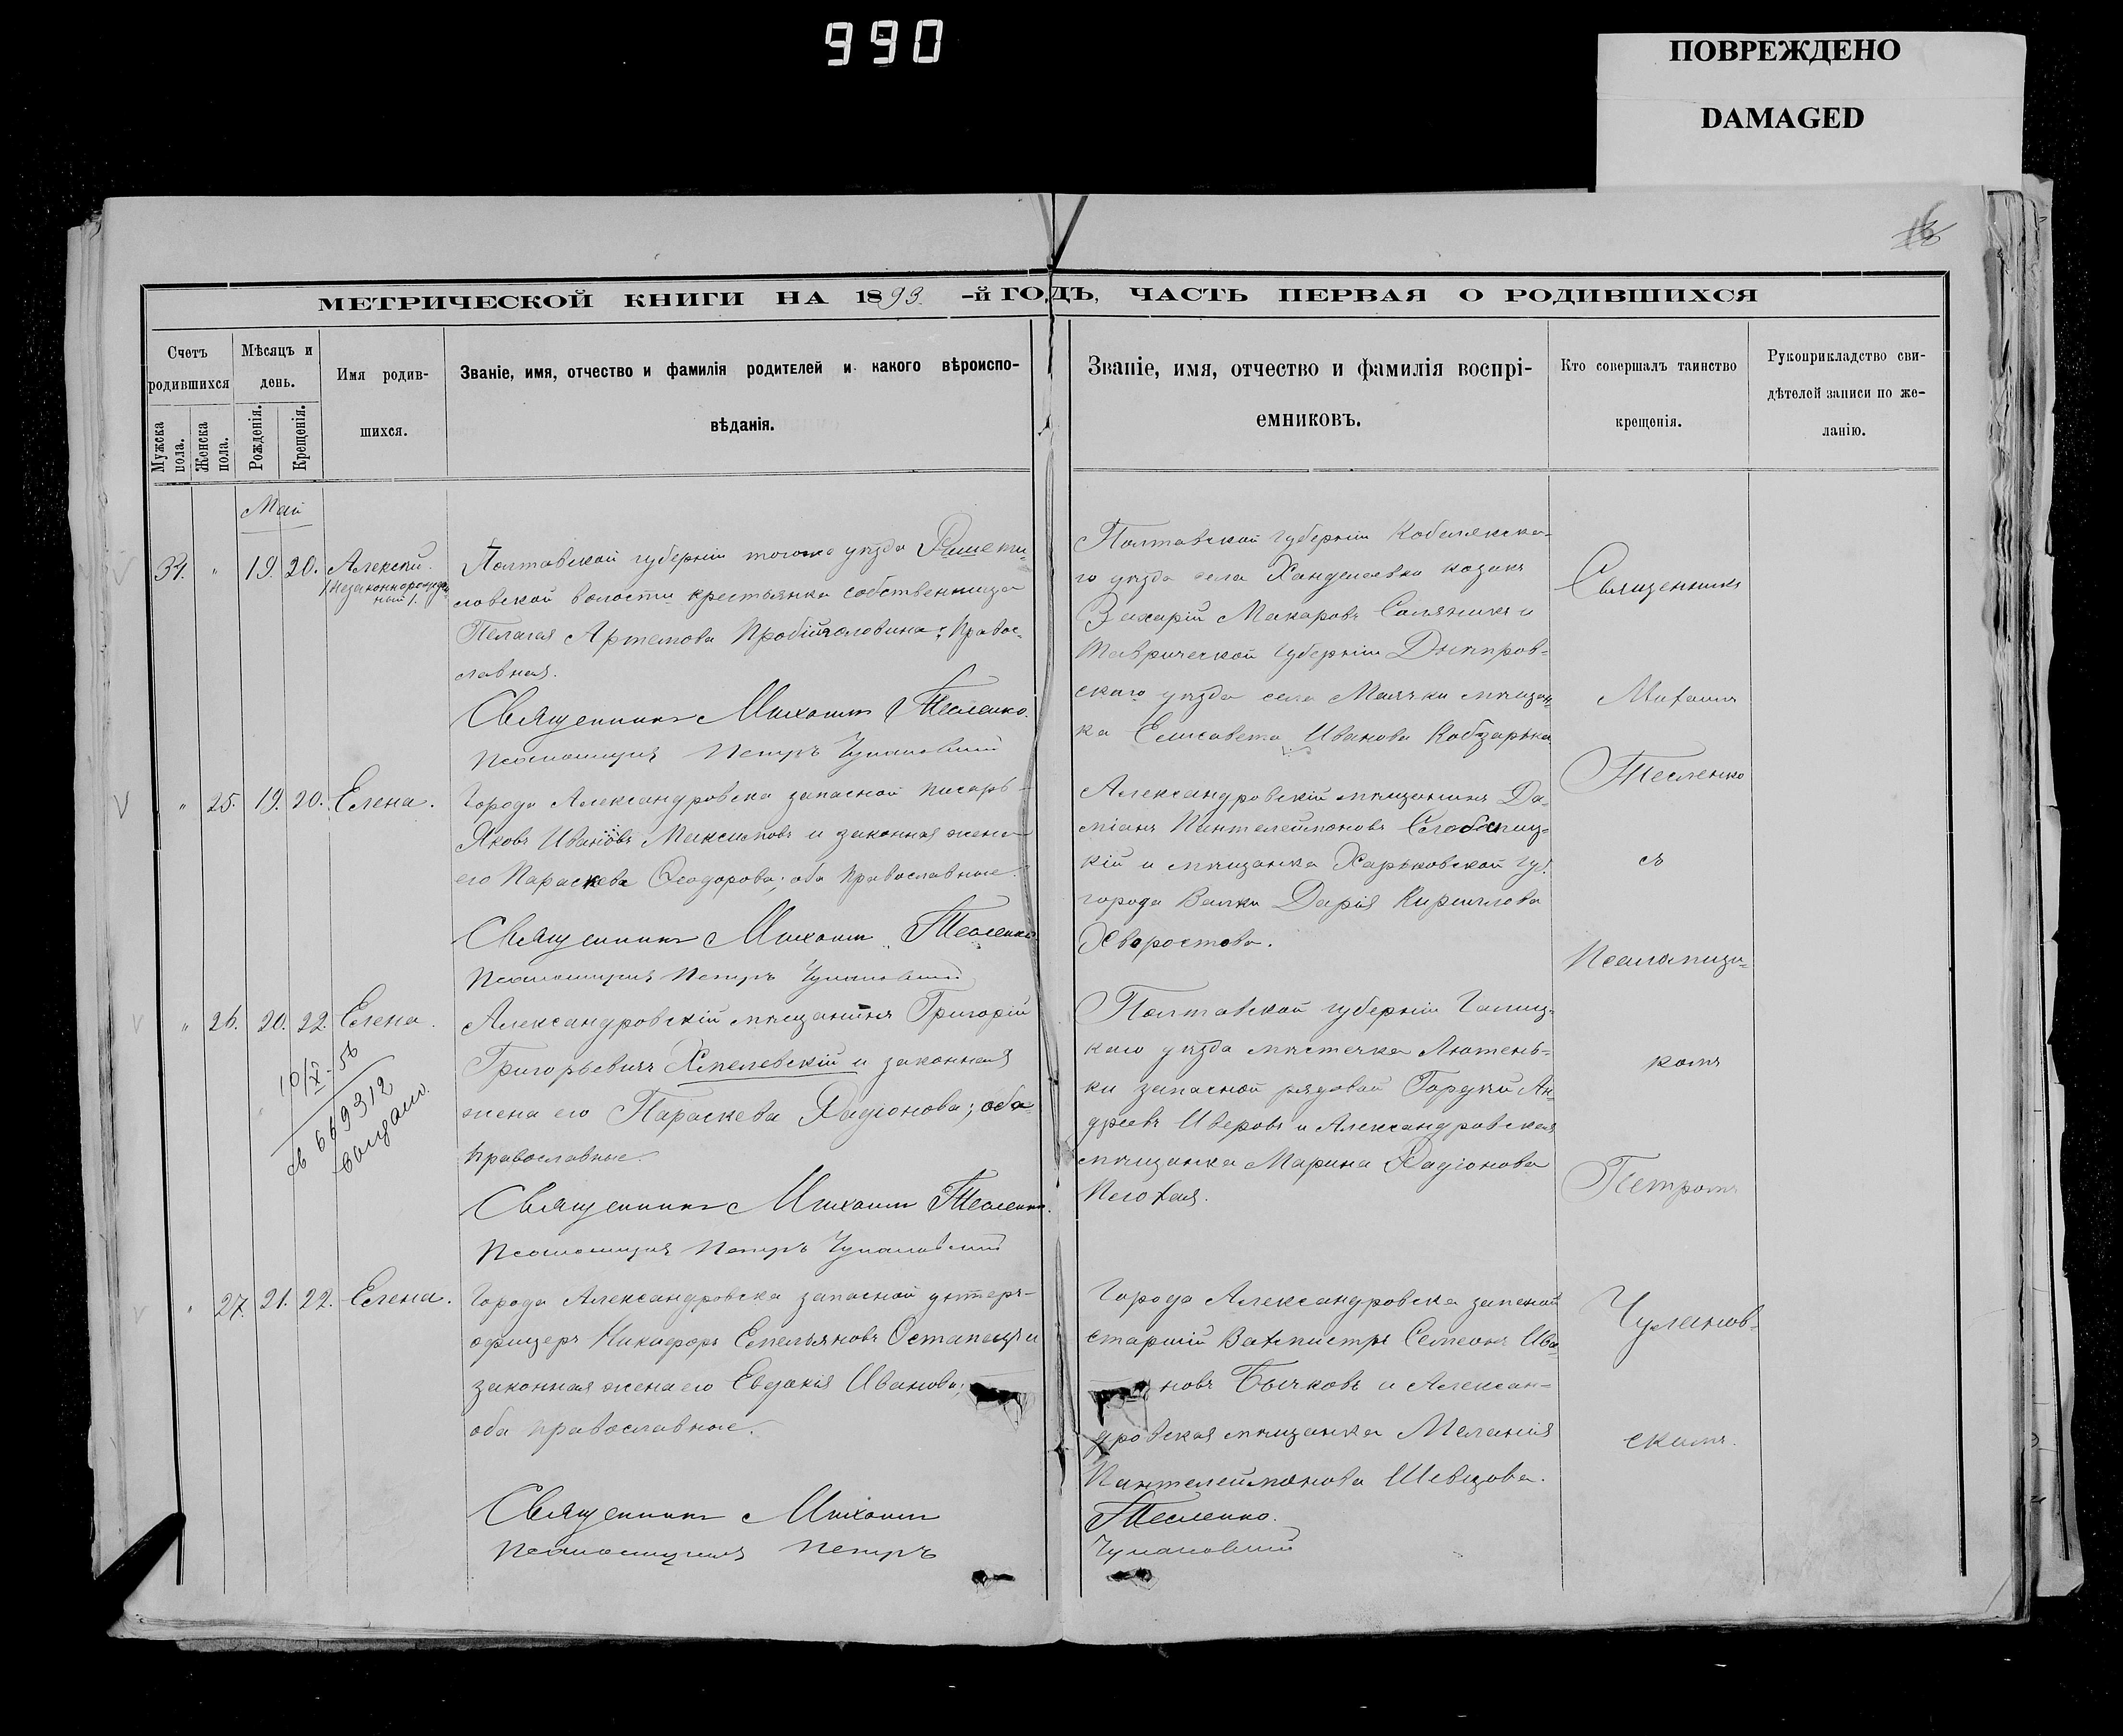 990
ПОВРЕЖДЕНО
DAMAGED
16
МЕТРИЧЕСКОЙ КНИГИ НА 1893.-й ГОДЪ, ЧАСТЬ ПЕРВАЯ О РОДИВШИХСЯ
Счетъ родившихся
Мужска пола.
Женска пола.
Мѣсяцъ и день.
Рожденія.
Крещенія.
Имя родив-
шихся.
Званіе, имя, отчество и фамилія родителей и какого вѣроиспо-
вѣданія.
Званіе, имя, отчество и фамилія воспрі-
емниковъ.
Кто совершалъ таинство
крещенія.
Рукоприкладство сви-
дѣтелей записи по же-
ланію.
Май
31. " 19. 20. Алексѣй.
/Незаконнорожден-
ный/.
Полтавской губерніи того же уѣзда Решети-
ловской волости крестьянка собственница
Пелагея Артемова Пробійголовина; Правос-
лавная.
Священникъ Михаилъ Тесленко.
Псаломщикъ Петръ Чулановскій
Полтавской губерніи Кобелякска-
го уѣзда села Ханделеевки козакъ
Захарій Макаровъ Соляникъ и
Таврической губерніи Днѣпров-
скаго уѣзда села Маячки мѣщан-
ка Елисавета Иванова Кобзарька
" 25. 19. 20. Елена.
Города Александровска запасной писарь
Яковъ Ивановъ Максимовъ и законная жена
его Параскева Ѳеодорова; оба Православные.
Священникъ Михаилъ Тесленко
Псаломщикъ Петръ Чулановскій
Александровскій мѣщанинъ Да-
міанъ Пантелеимоновъ
кій и мѣщанка Харьковской губ.
города Валки Дарія Кириллова
Хворостова.
" 26. 20. 22. Елена.
10/X-56
св 669312
выдано.
Александровскій мѣщанинъ Григорій
Григорьевичъ Хмелевскій и законная
жена его Параскева Радіонова; оба
православные.
Священникъ Михаилъ Тесленко.
Псаломщикъ Петръ Чулановскій
Полтавской губерніи Гадяц-
каго уѣзда мѣстечка Лютень-
ки запасной рядовой Гордѣй Ан-
дреевъ Иверовъ и Александровская
мѣщанка Марина Радіонова
" 27. 21. 22. Елена.
Города Александровска запасной унтеръ-
офицеръ Никифоръ Емельяновъ Остапецъ и
законная жена его Евдокія Иванова;
оба православные.
Священникъ Михаилъ
Псаломщикъ Петръ
Города Александровска запасной
старшій Вахмистръ Семеонъ Ива-
новъ Бычковъ и Алексан-
дровская мѣщанка Меланія
Пантелеимонова Шевцова.
Тесленко.
Чулановскій
Священникъ
Михаилъ
Тесленко
съ
Псаломщи-
комъ
Петромъ
Чуланов-
скимъ.